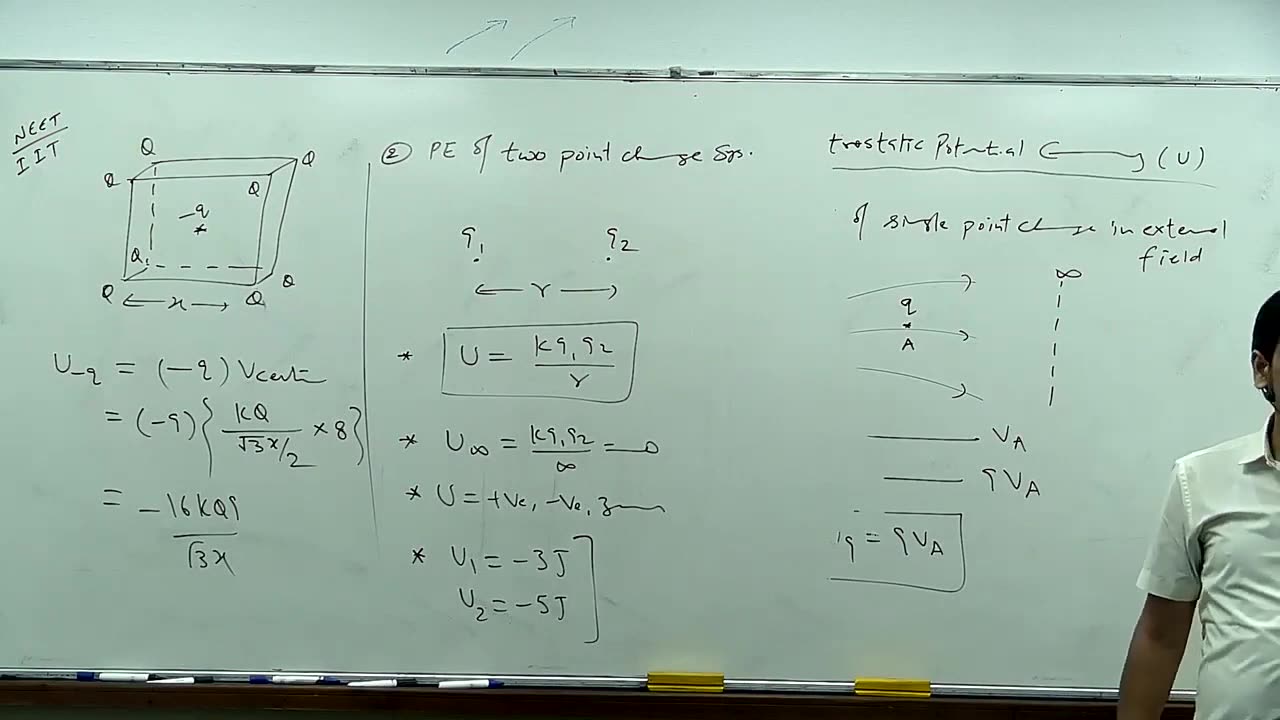 NEET
IIT
Q
Q
Q
Q
-q
Q
Q
Q
Q
x
U-q = (-q) V
= (-q) { KQ / √3x/2 × 8 }
= -16KQq / √3x
② PE of two point charge Sys.
q1 q2
r
* U = Kq1q2 / r
* U∞ = Kq1q2 / ∞ = 0
* U = +Ve, -Ve, zero
* U1 = -3J
U2 = -5J
trostatic Potential (U)
of single point charge in external
field
∞
q
A
VA
qVA
q = qVA